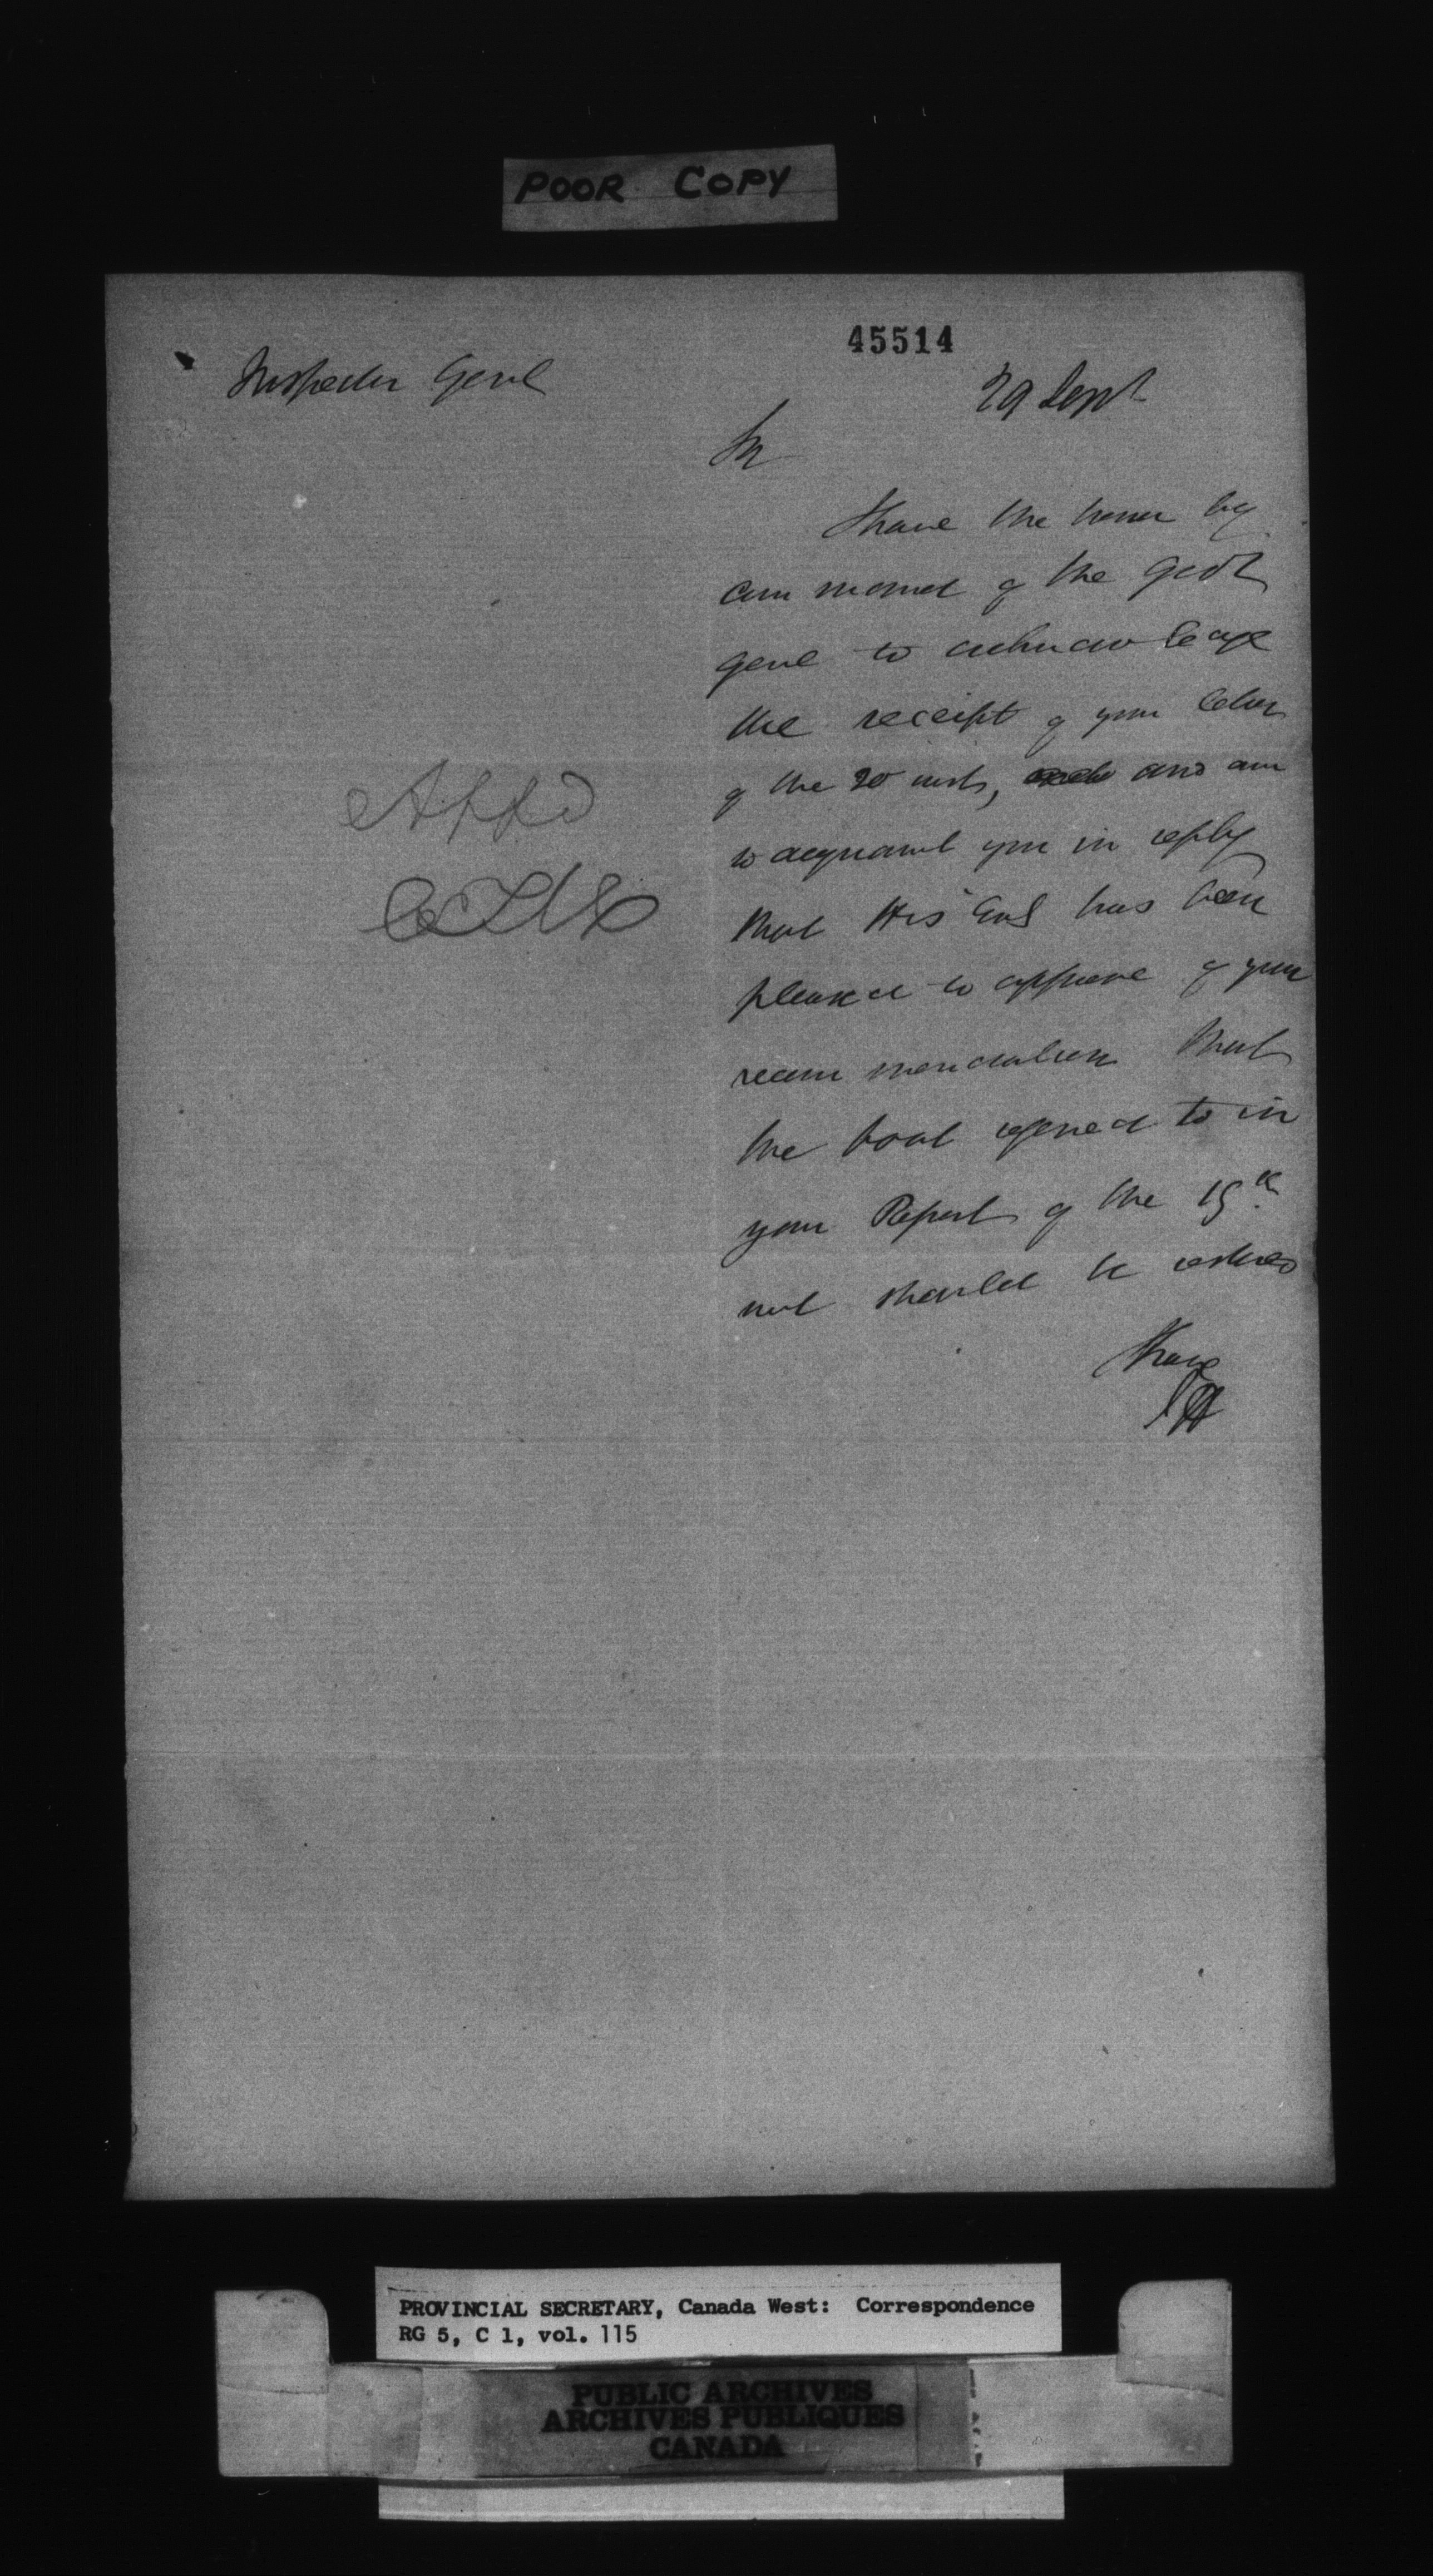 POOR COPY
45514
Inspector Genl
29 Sept
Sir
I have the honor by
command of the Govr
Genl to acknowledge
the receipt of your letter
of the 20 inst, and am
to acquaint you in reply
that His Exc has been
pleased to approve of your
recommendation that
the boat referred to in
your Report of the 15th
inst should be restored
I have
Appd
PROVINCIAL SECRETARY, Canada West: Correspondence
RG 5, C 1, vol. 115
PUBLIC ARCHIVES
ARCHIVES PUBLIQUES
CANADA